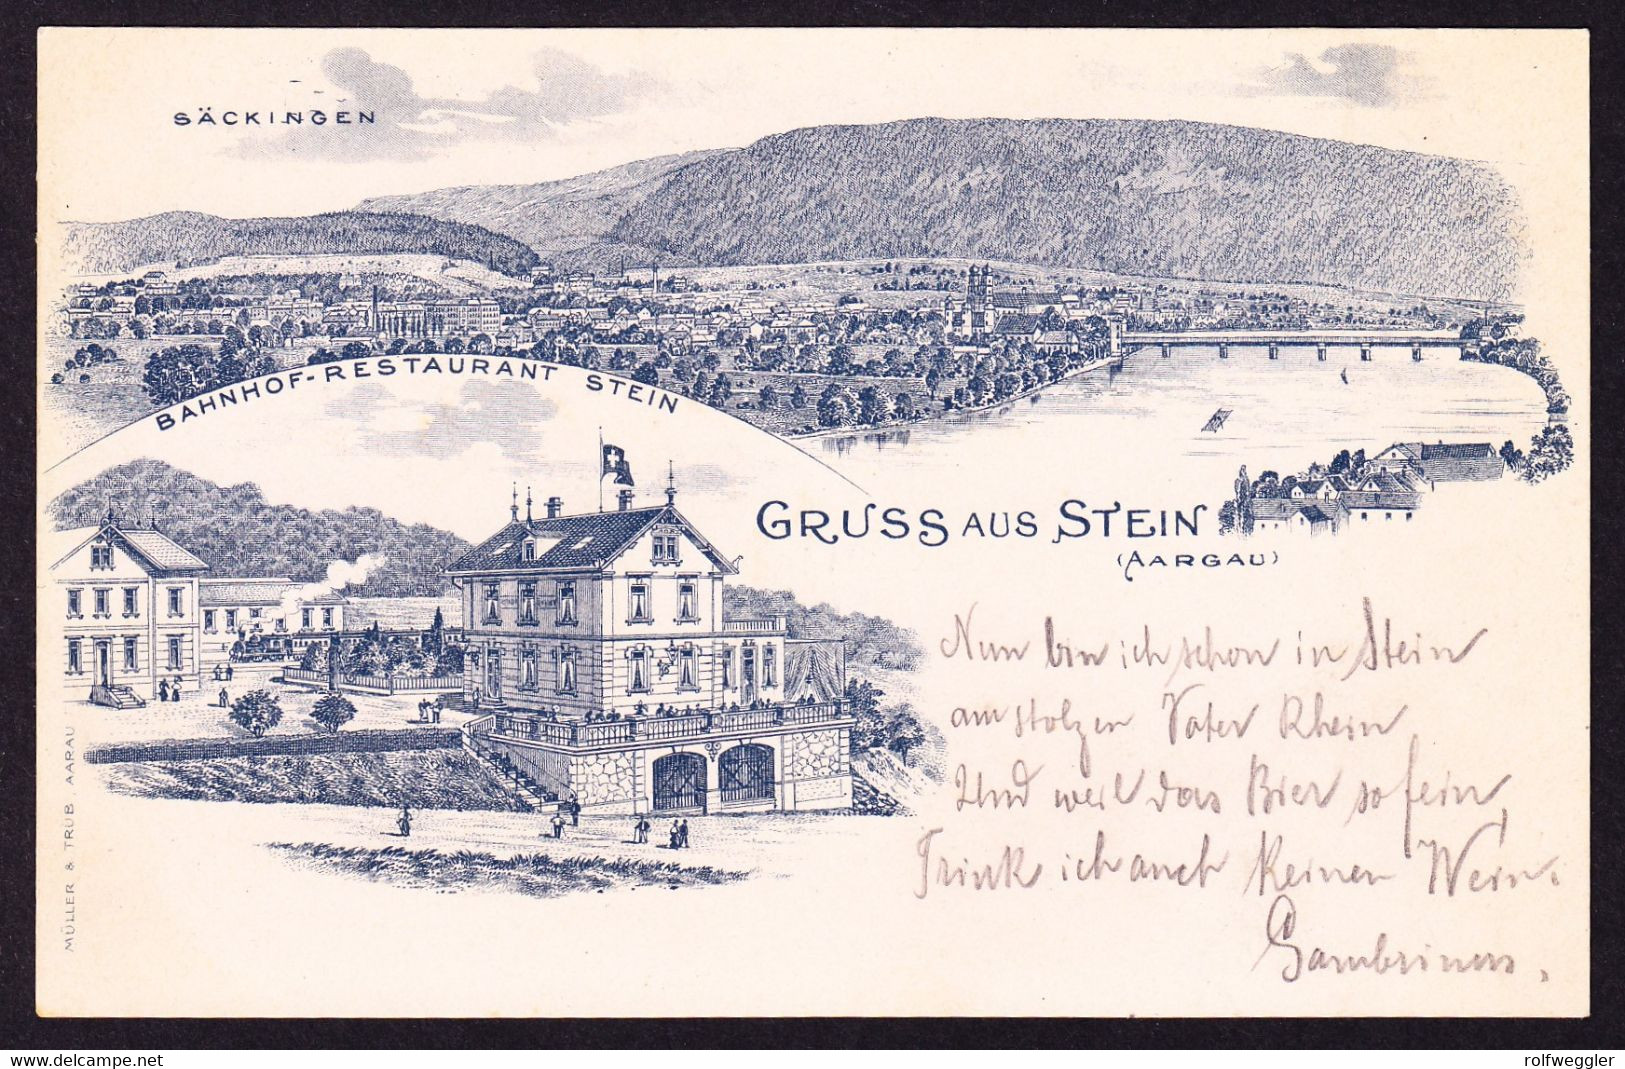 SÄCKINGEN
BAHNHOF-RESTAURANT STEIN
GRUSS AUS STEIN
(AARGAU)
Nun bin ich schon in Stein
am stolzen Vater Rhein
Und weil das Bier so fein,
Trink ich auch keinen Wein.
Gambrinus.
MÜLLER & TRÜB AARAU
delcampe.net
rolfweggler